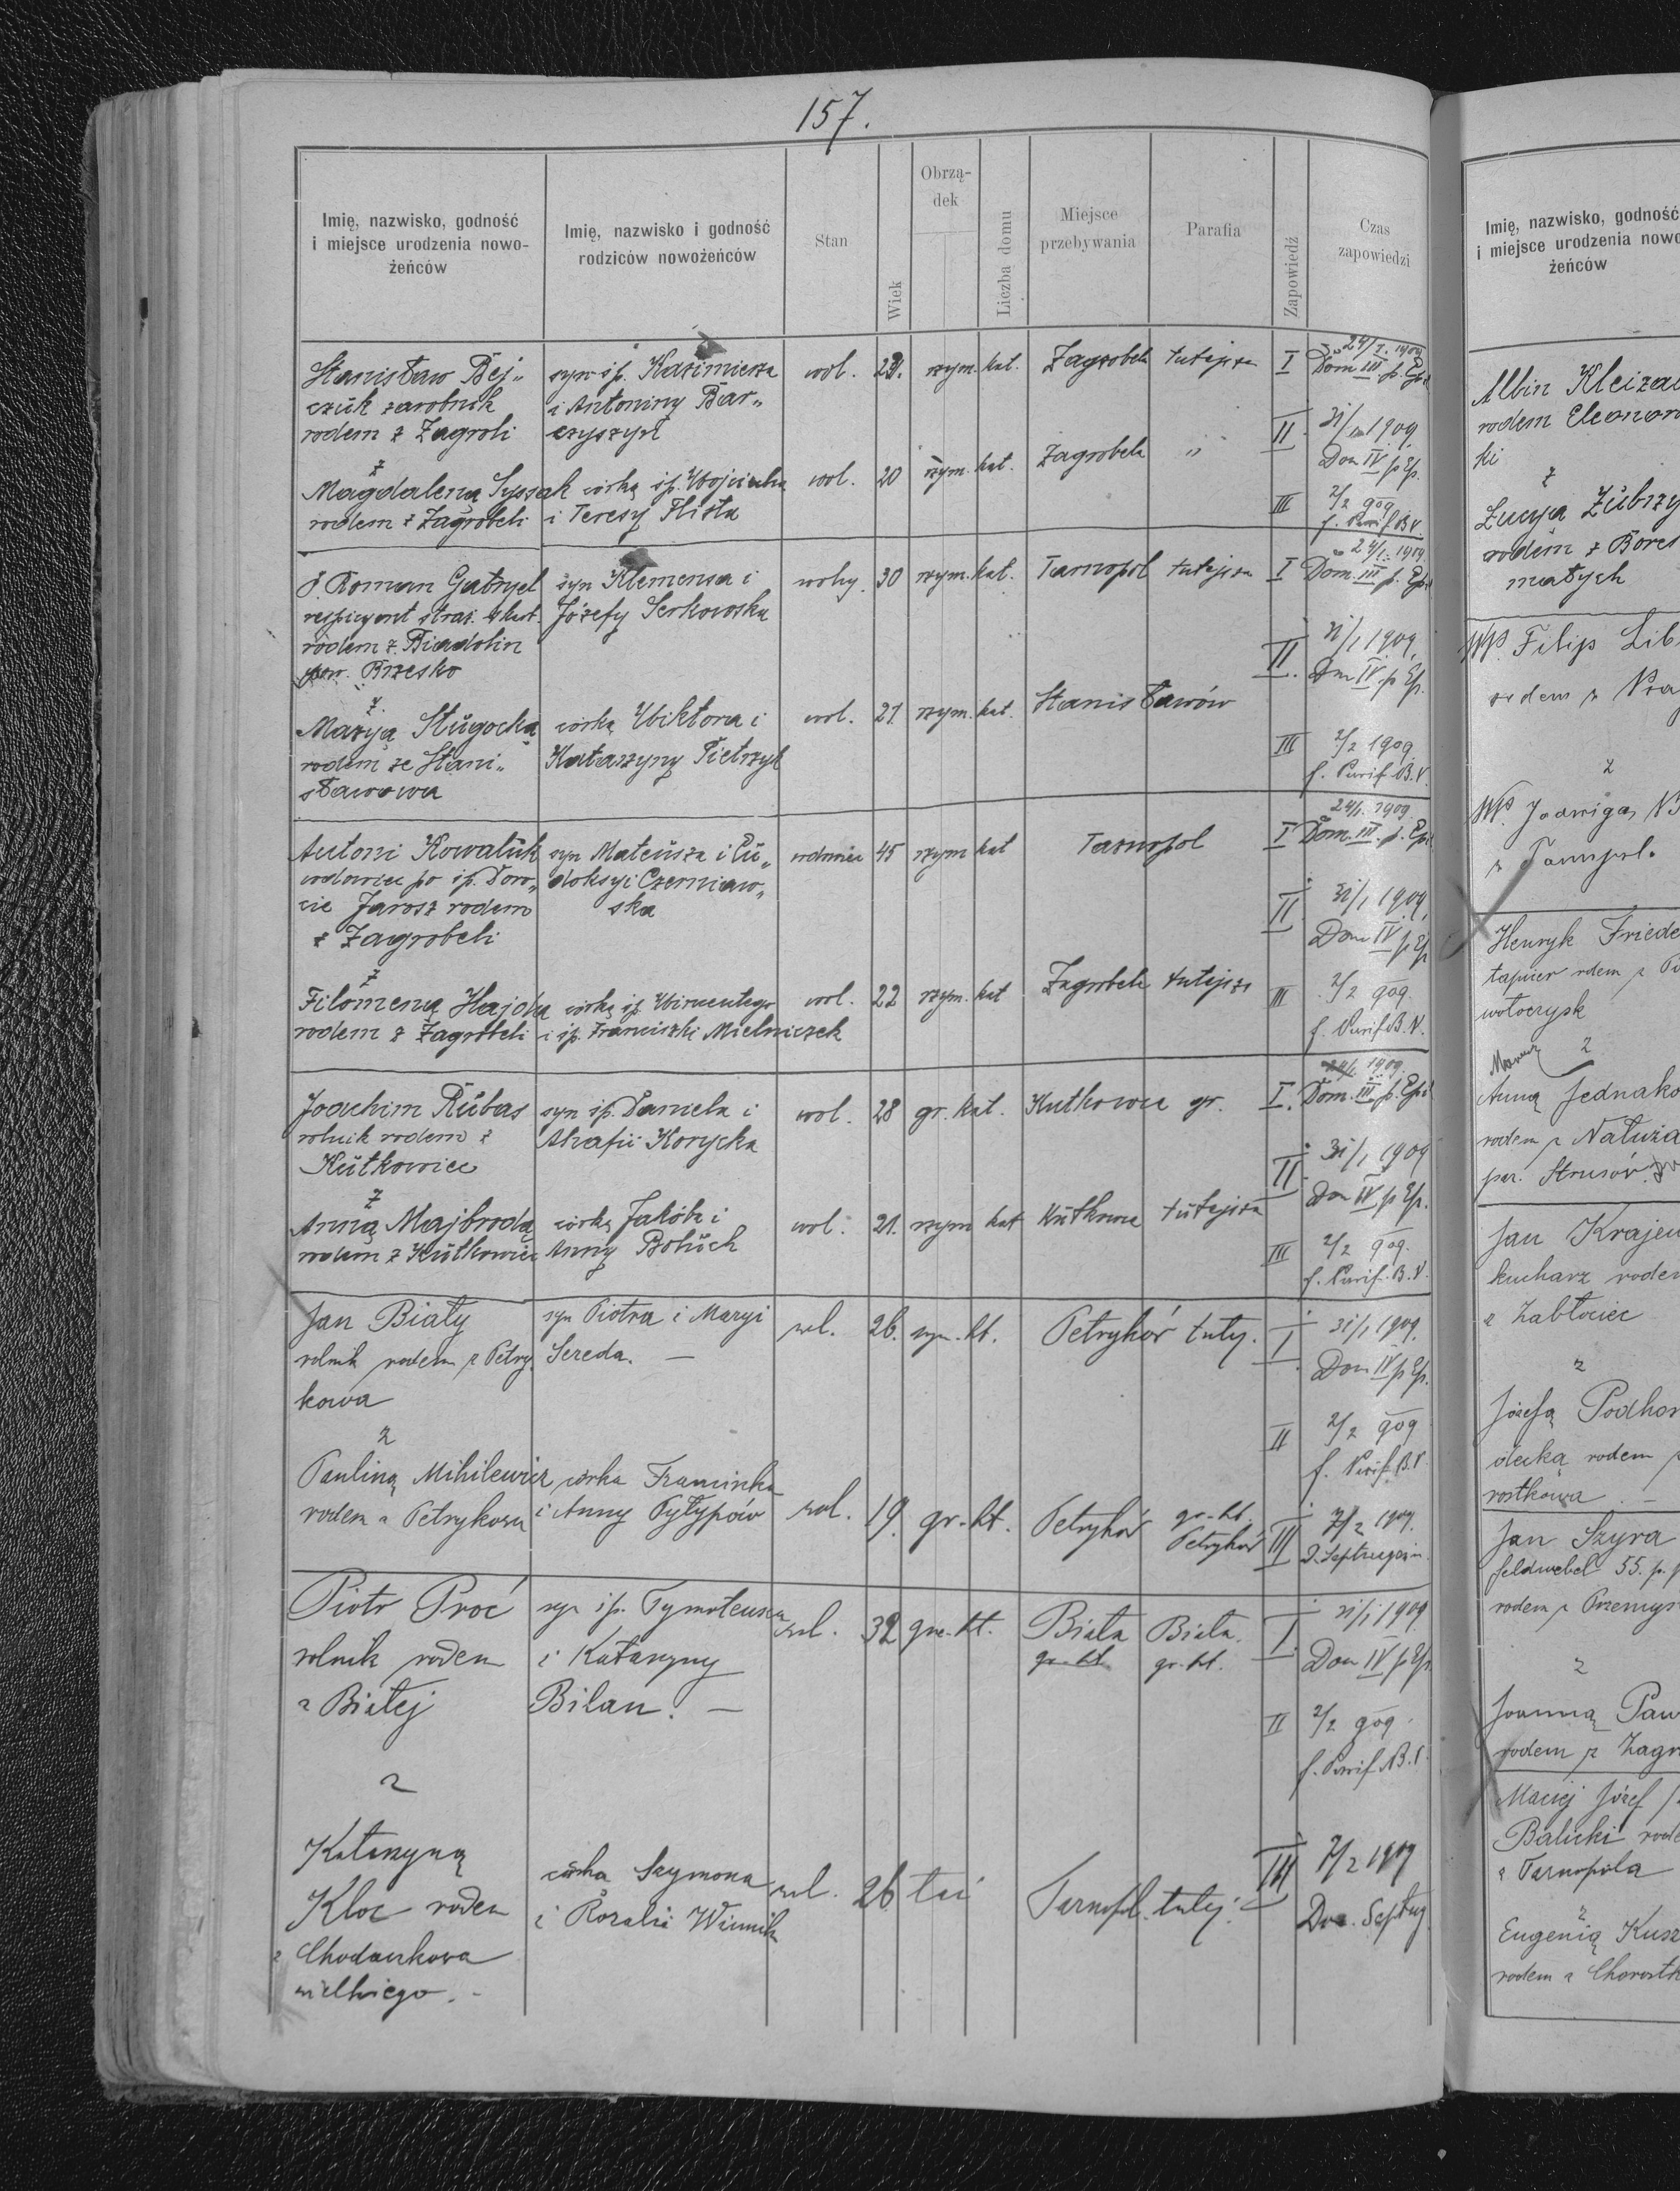 157.
Imię, nazwisko, godność
i miejsce urodzenia nowo-
żeńców
Imię, nazwisko i godność
rodziców nowożeńców
Stan
Wiek
Obrzą-
dek
Liczba domu
Miejsce
przebywania
Parafia
Zapowiedź
Czas
zapowiedzi
Stanisław Bej„
czuk zarobnik
rodem z Zagrobli
z
Magdaleną Syssak
rodem z Zagrobeli
syn śp. Kazimierza
i Antoniny Bar„
czyszyn
córką śp. Wojciecha
i Teresy Flista
wol. 23. rzym. kat. Zagrobela tutejsza
wol. 20 rzym. kat. Zagrobela "
I 24/1. 1909
Dom III p. Epi
II 31/1 1909.
Dom IV p Ep.
III 2/2 909
f. Purif B.V.
P. Roman Gabryel
respicyent straż. skart.
rodem z. Biadolin
pow. Brzesko
z.
Maryą Sługocką
rodem ze Stani„
sławowa
syn Klemensa i
Józefy Serkowska
córką Wiktora i
Katarzyny Pietrzyk
wolny. 30 rzym. kat. Tarnopol tutejsza
wol. 21. rzym. kat. Stanisławów
I 24/1. 1909
Dom. III p. Epi
II. 31/1 1909,
Dom IV. p Ep.
III 2/2 1909
f. Purif. B.V.
Antoni Kowaluk
wdowiec po śp. Doro„
cie Jarosz rodem
z Zagrobeli
z
Filomeną Hajdka
rodem z Zagrobeli
syn Mateusza i Eu„
doksyi Czerniaw„
ska
córką śp. Wincentego
i śp. Franciszki Mielniczek
wdowiec 45 rzym kat Tarnopol
wol. 22 rzym. kat Zagrobela tutejsza
I 24/1. 1909
Dom. III. p. Epi
II 31/1 1909,
Dom IV p Ep
III 2/2 909.
f. Purif B.V.
Joachim Rubas
rolnik rodem z
Kutkowiec
z
Anną Majbrodą
rodem z Kutkowiec
syn śp. Daniela i
Ahafii Korycka
córką Jakóba i
Anny Bohuch
wol. 28 gr. kat. Kutkowce gr.
wol. 21. rzym kat Kutkowce tutejsza
I. 24/1. 1909.
Dom. III. p. Epi
II 31/1 1909
Dom IV p Ep.
III 2/2 909.
f. Purif. B.V.
Jan Biały
rolnik rodem z Petry
kowa
z
Pauliną Mihilewicz
rodem z Petrykowa
syn Piotra i Maryi
Sereda. —
córka Franciszka
i Anny Pyłypów
wol. 26. rzym. kt. Petryków tutej.
wol. 19. gr. kt. Petryków gr. kt.
Petryków
I 31/1 1909.
Dom IV p Ep.
II 2/2 909
f. Purif. B.V.
III 7/2 1909.
D. Septuagesim.
Piotr Proć
rolnik rodem
z Białej
z
Katarzyną
Kloc rodem
z Chodaczkowa
wielkiego. -
syn śp. Tymoteusza
i Katarzyny
Bilan. —
córka Szymona
i Rozalii Winnik
wol. 32 gr. kt. Biała Biała.
gr. kt. gr. kt.
wol. 26 taż Tarnopol. tutej.
I. 31/1 1909
Dom IV p Ep.
II 2/2 909.
f. Purif B.V.
III 7/2 1909
Dom. Septuag
Imię, nazwisko, godność
i miejsce urodzenia nowo
żeńców
Albin Kleizar
rodem Eleonor
ki
z
Łucyą Zubrzy
rodem z Bores
małych
WP. Filip Lib
rodem z
z
WP. Jadwigą
z Tarnopol.
Henryk Friede
tapicer rodem z
wołoczysk
z
Anną Jednako
rodem z Natuża
par. Strusów.
Jan Krajew
kucharz rodem
z Zabłociec
z
Józefą Podhor
decką rodem z
rostkowa —
Jan Szyra
feldwebel 55. p. p
rodem z Przemyś
z
Joanną Paw
rodem z Zagr
Maciej Józef
Balicki rode
z Tarnopola
z
Eugenią Kusz
rodem z Chorostk